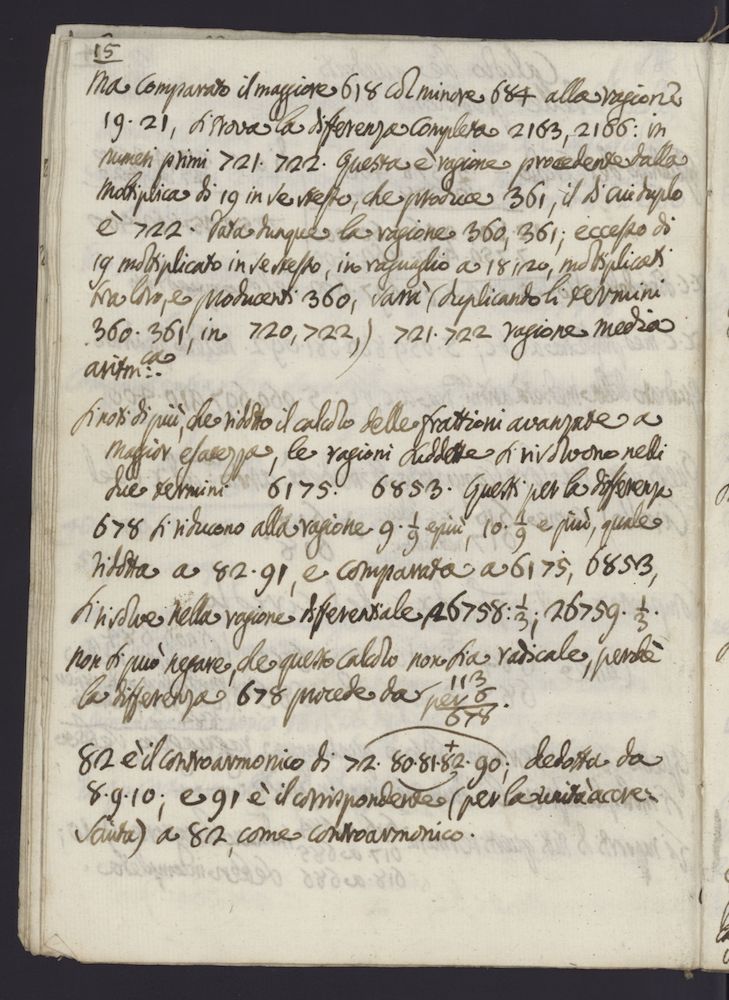 15
Ma comparato il maggiore 618 col minore 684 alla ragione
19. 21, si trova la differenza completa 2163, 2166: in
numeri primi 721. 722. Questa è ragione procedente dalla
moltiplica di 19 in se stesso, che produce 361, il di cui duplo
è 722. Data dunque la ragione 360, 361; eccesso di
19 moltiplicato in se stesso, in raguaglio a 18, 20, moltiplicati
tra loro, e producenti 360, sarà (duplicando li termini
360. 361, in 720, 722,) 721. 722 ragione media
aritm:ca
Si noti di più, che ridotto il calcolo delle frattioni avanzate a
maggior esatezza, le ragioni suddette si risolvono nelli
due termini 6175. 6853. Questi per la differenza
678 si riducono alla ragione 9. 1/9 e più, 10. 1/9 e più, quale
ridotta a 82. 91, e comparata a 6175, 6853,
si risolve nella ragione differentiale 26758: 1/3; 26759. 1/3.
Non si può negare, che questo calcolo non sia radicale, perchè
la differenza 678 procede da 113
per 6
678.
82 è il controarmonico di 72. 80. 81. 82. 90; dedotta da
8. 9. 10; e 91 è il corrispondente (per la unità accre-
sciuta) a 82, come controarmonico.